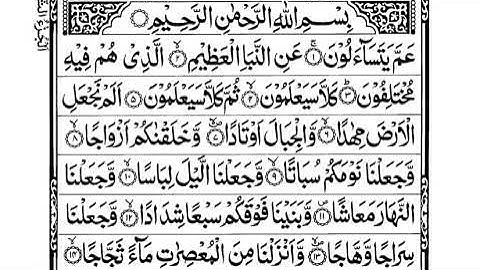 بِسْمِ اللهِ الرَّحْمٰنِ الرَّحِيْمِ
عَمَّ يَتَسَآءَلُوْنَ ۝١ عَنِ النَّبَاِ الْعَظِيْمِ ۝٢ الَّذِىْ هُمْ فِيْهِ
مُخْتَلِفُوْنَ ۝٣ كَلَّا سَيَعْلَمُوْنَ ۝٤ ثُمَّ كَلَّا سَيَعْلَمُوْنَ ۝٥ اَلَمْ نَجْعَلِ
الْاَرْضَ مِهٰدًا ۝٦ وَّالْجِبَالَ اَوْتَادًا ۝٧ وَّخَلَقْنٰكُمْ اَزْوَاجًا ۝٨
وَّجَعَلْنَا نَوْمَكُمْ سُبَاتًا ۝٩ وَّجَعَلْنَا الَّيْلَ لِبَاسًا ۝١٠ وَّجَعَلْنَا
النَّهَارَ مَعَاشًا ۝١١ وَّبَنَيْنَا فَوْقَكُمْ سَبْعًا شِدَادًا ۝١٢ وَّجَعَلْنَا
سِرَاجًا وَّهَّاجًا ۝١٣ وَّاَنْزَلْنَا مِنَ الْمُعْصِرٰتِ مَآءً ثَجَّاجًا ۝١٤